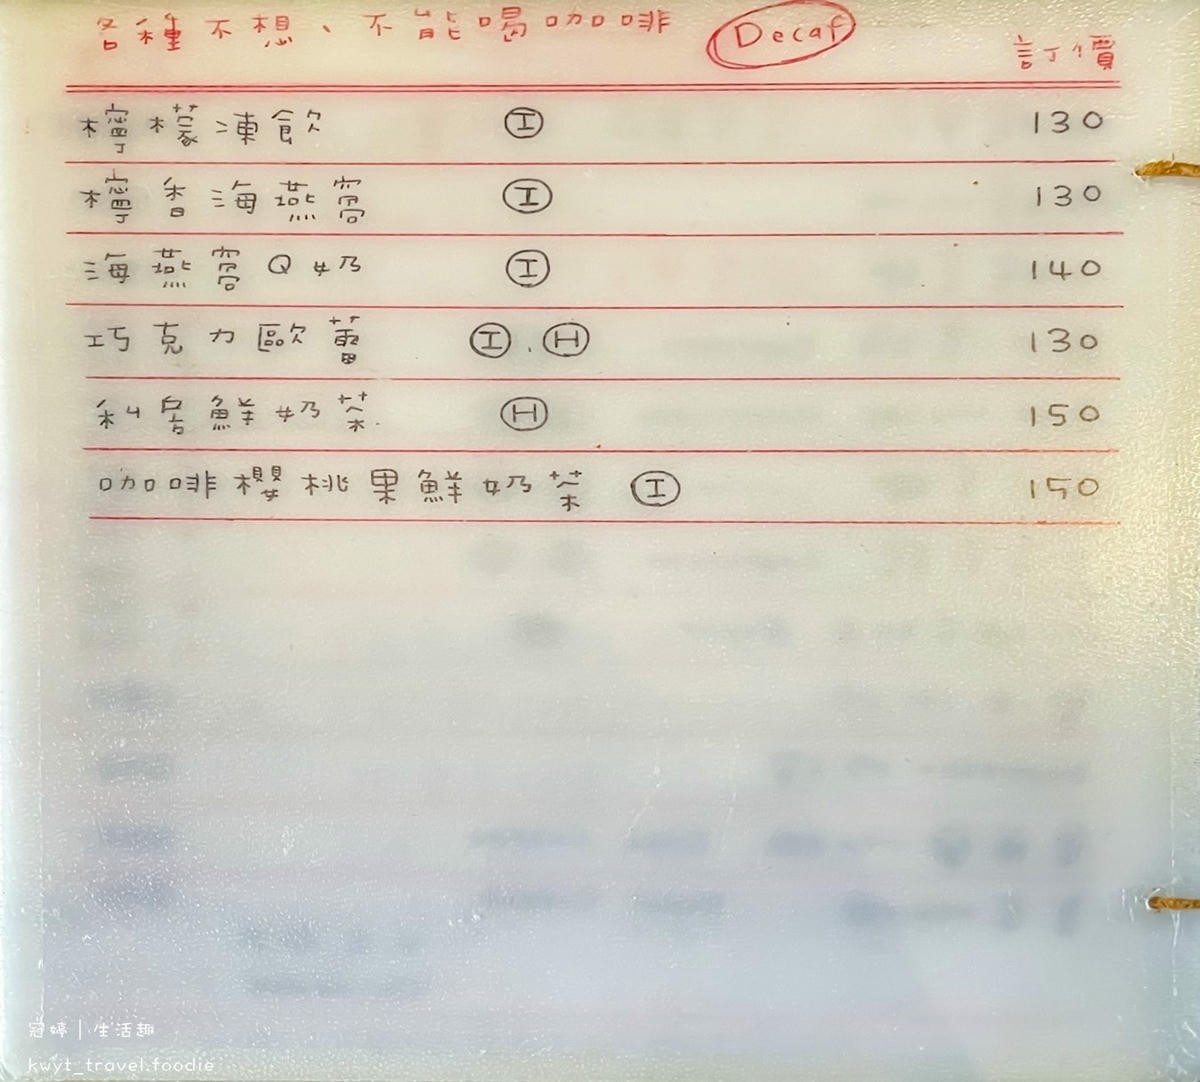 各種不想、不能喝咖啡 Decaf 訂價
檸檬凍飲 I 130
檸香海燕窩 I 130
海燕窩Q奶 I 140
巧克力歐蕾 I . H 130
私房鮮奶茶. H 150
咖啡櫻桃果鮮奶茶 I 150
冠婷 | 生活趣
kwyt_travel.foodie